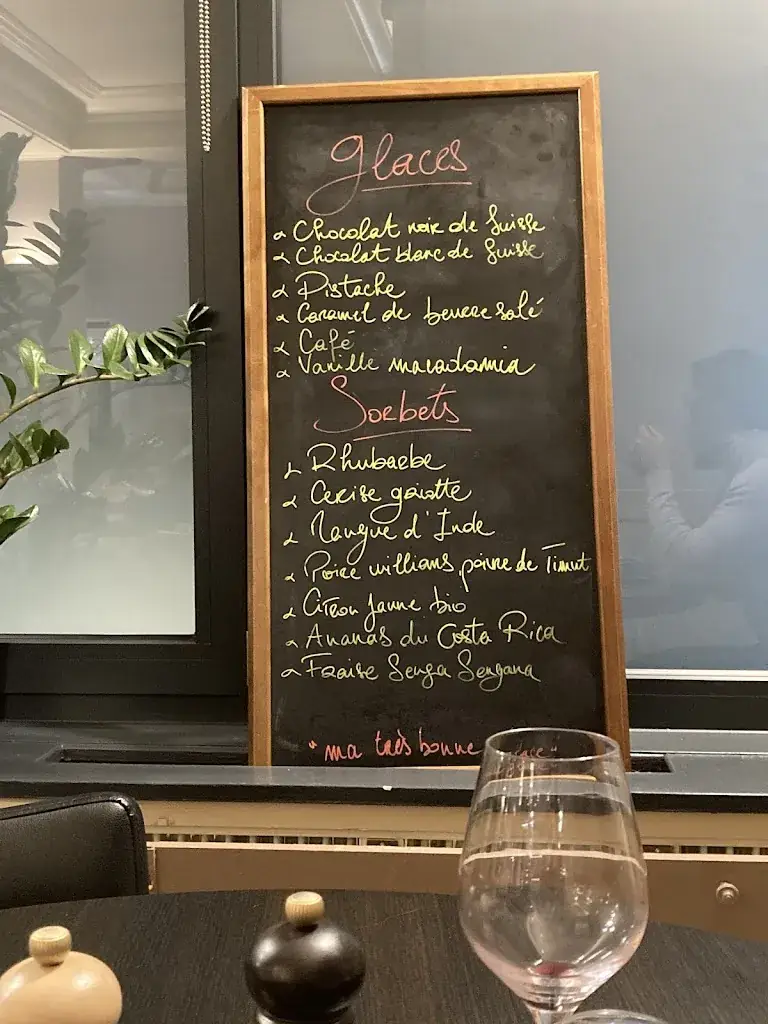 Glaces
Chocolat noir de Suisse
Chocolat blanc de Suisse
Pistache
Caramel de beurre salé
Café
Vanille macadamia
Sorbets
Rhubarbe
Cerise griotte
Mangue d'Inde
Poire williams, poivre de Timut
Citron jaune bio
Ananas du Costa Rica
Fraise Senga Sengana
"ma très bonne glace"